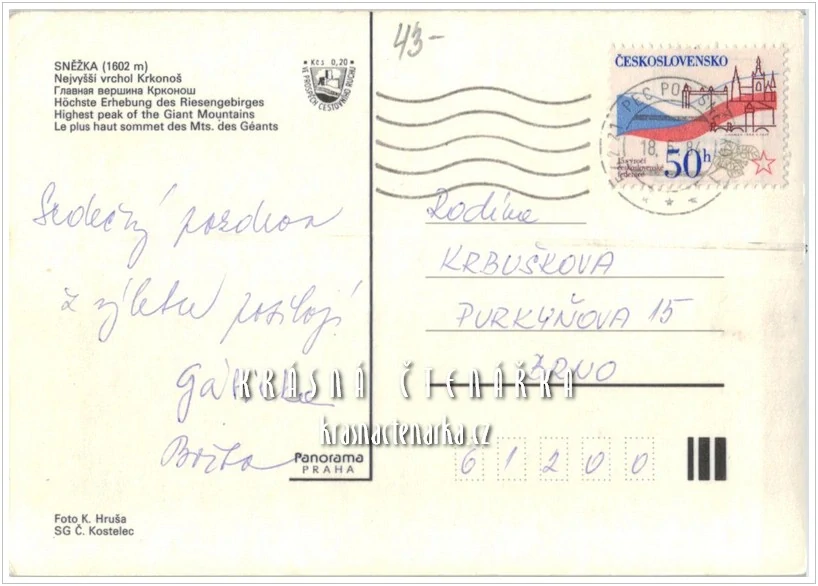 SNĚŽKA (1602 m)
Nejvyšší vrchol Krkonoš
Главная вершина Крконош
Höchste Erhebung des Riesengebirges
Highest peak of the Giant Mountains
Le plus haut sommet des Mts. des Géants
Kčs 0,20
VE PROSPĚCH CESTOVNÍHO RUCHU
43-
ČESKOSLOVENSKO
PEC POD
18. 6. 84
15. výročí
československé
federace
50h
Srdečný pozdrav
z výletu posílají
Rodina
KRBUŠKOVA
PURKYŇOVA 15
BRNO
61200
KRÁSNÁ ČTENÁŘKA
krasnactenarka.cz
Panorama
PRAHA
Foto K. Hruša
SG Č. Kostelec